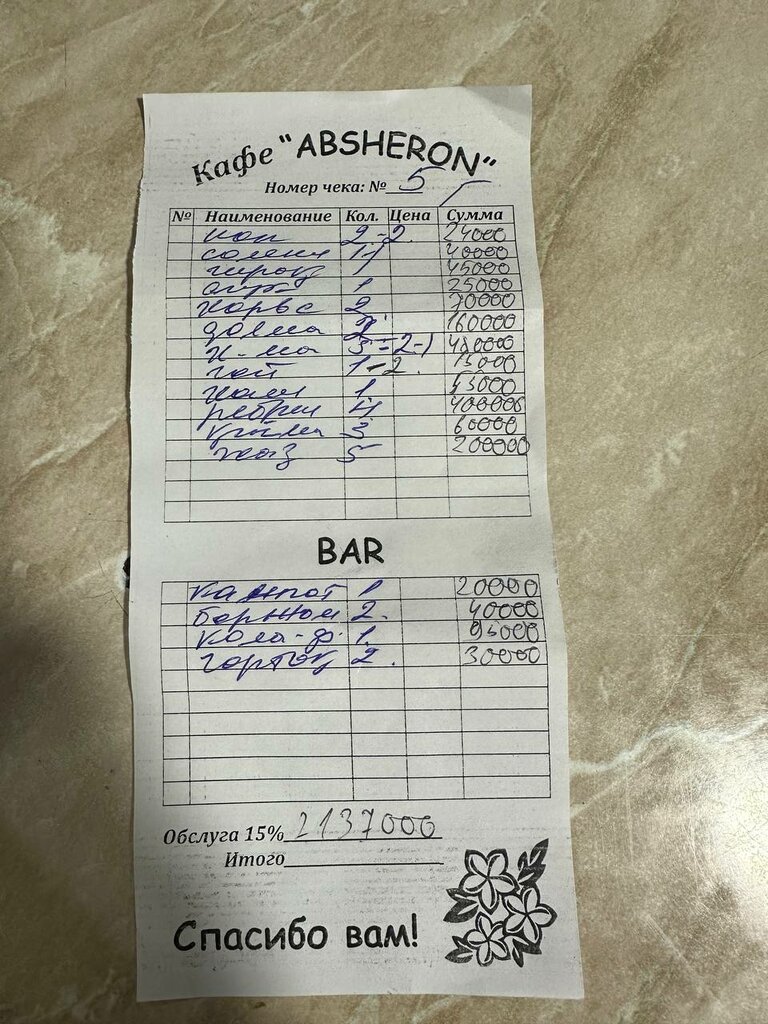 Кафе "ABSHERON"
Номер чека: № 5
№ Наименование Кол. Цена Сумма
нон 2-2 24000
солени 1-1 40000
1 45000
1 25000
2 70000
долма 2 160000
3-2-1 480000
чай 1-2. 15000
1 45000
ребри 4 400000
3 60000
5 200000
BAR
кампот 1 20000
боржом 2. 40000
кола-ф. 1. 95000
2. 30000
Обслуга 15% 2137000
Итого
Спасибо вам!